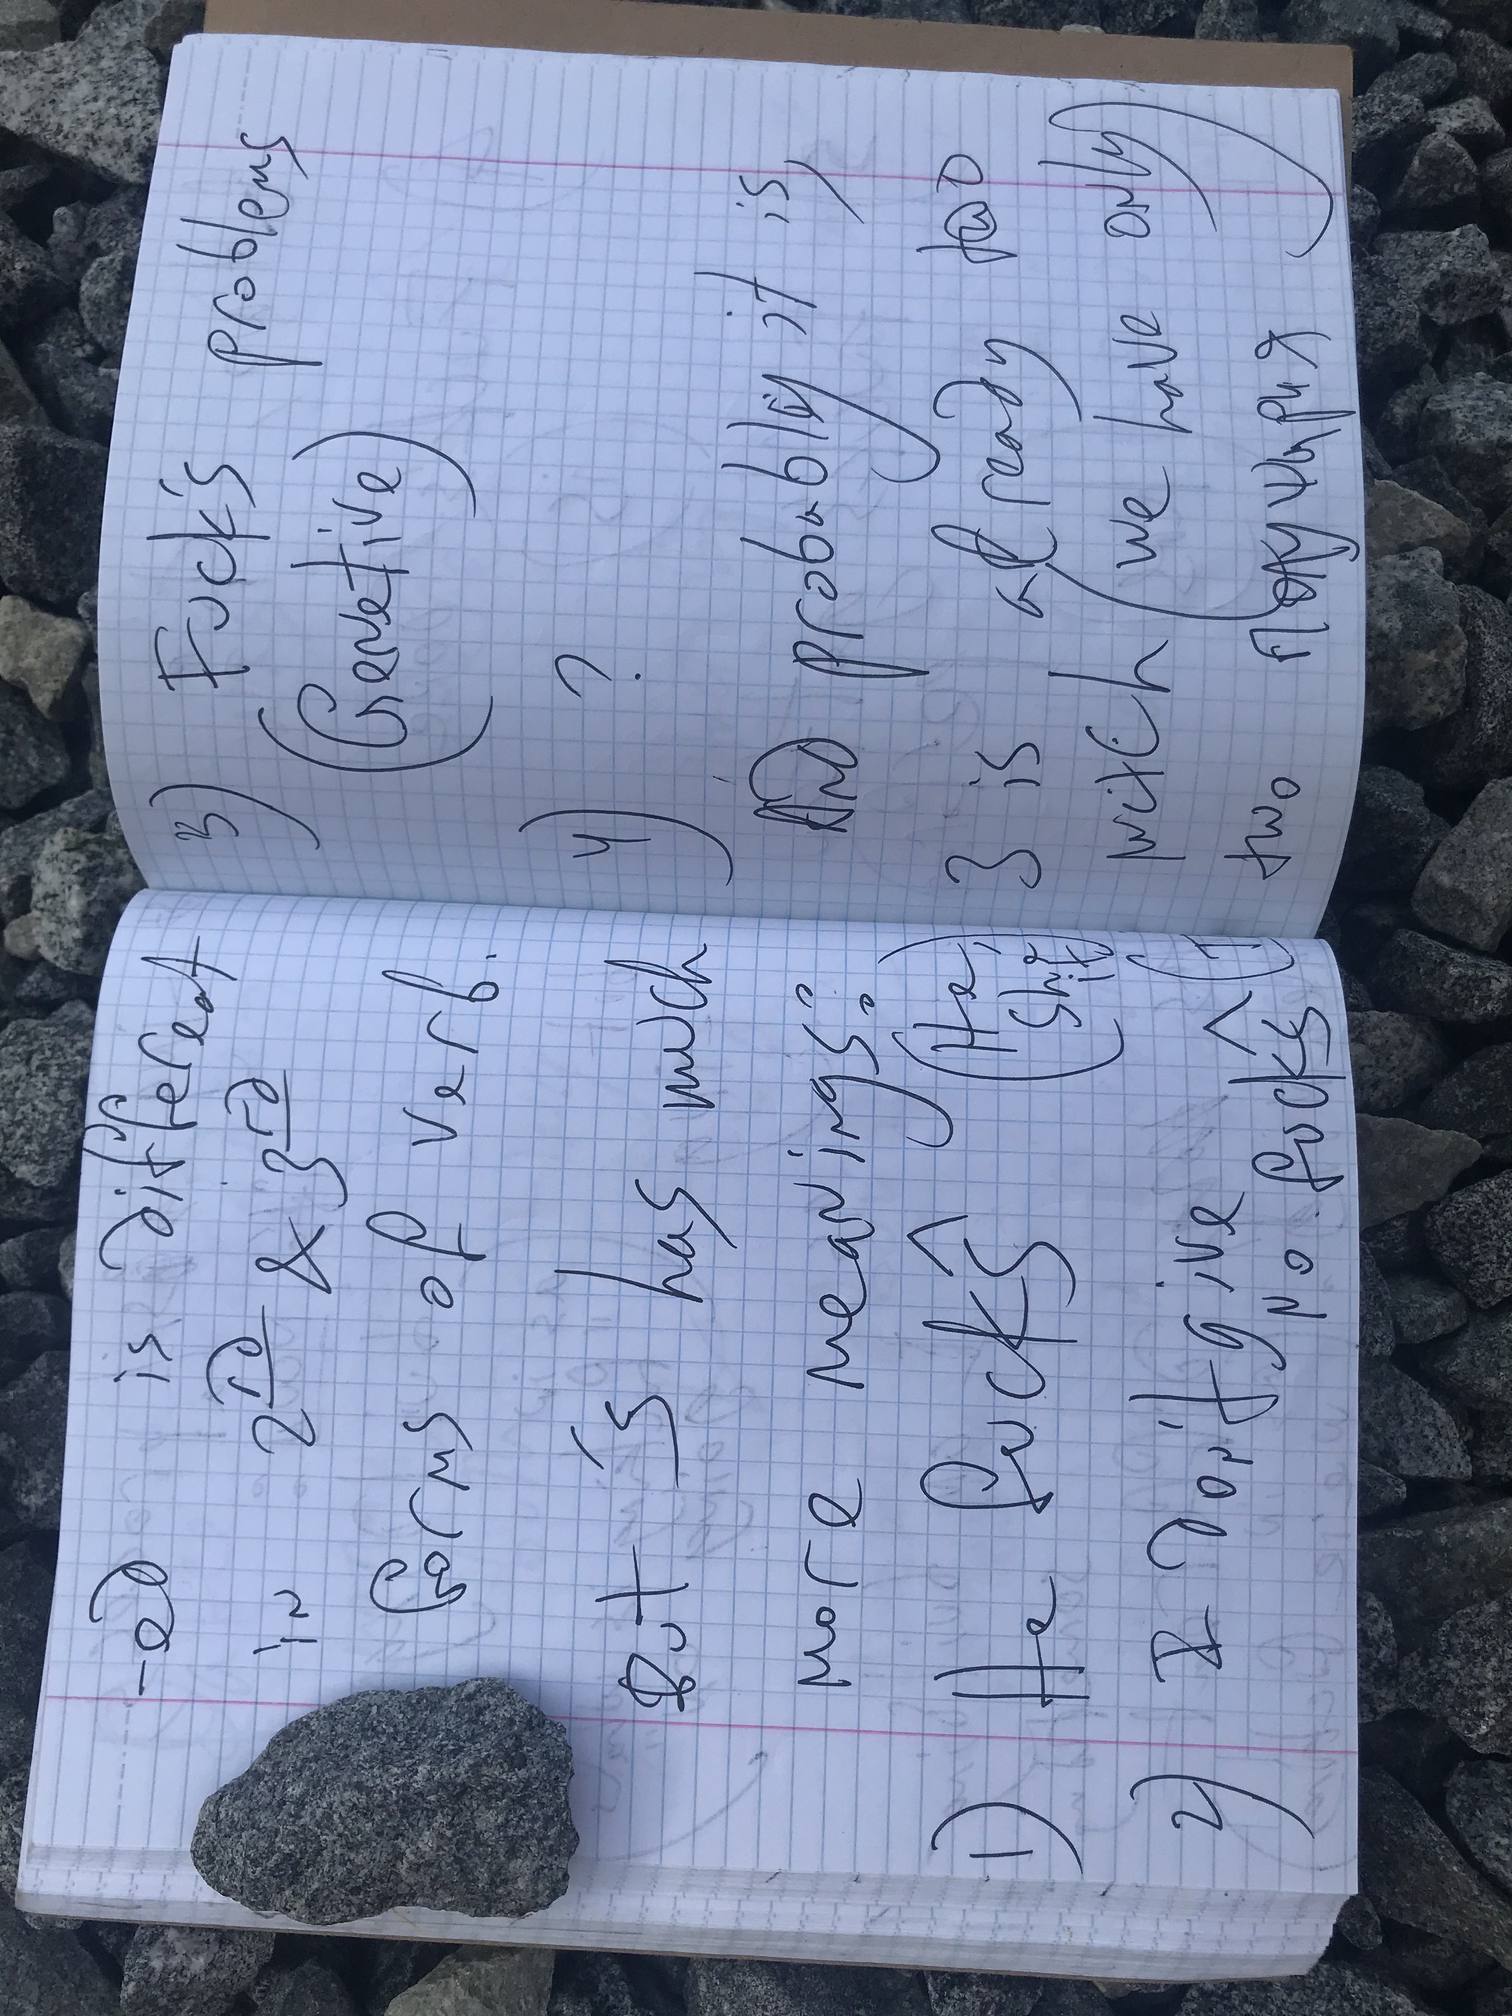 -ed is different
in 2ED & 3ED
forms of verb.
But 's has much
more meanings:
1) He fuck^s (He,
She,
it)
2) I don't give
no fuck^s (
3) Fuck's problems
(Genetive)
4) ?
And probably it is,
3 is already too
witch (we have only
two полушария)